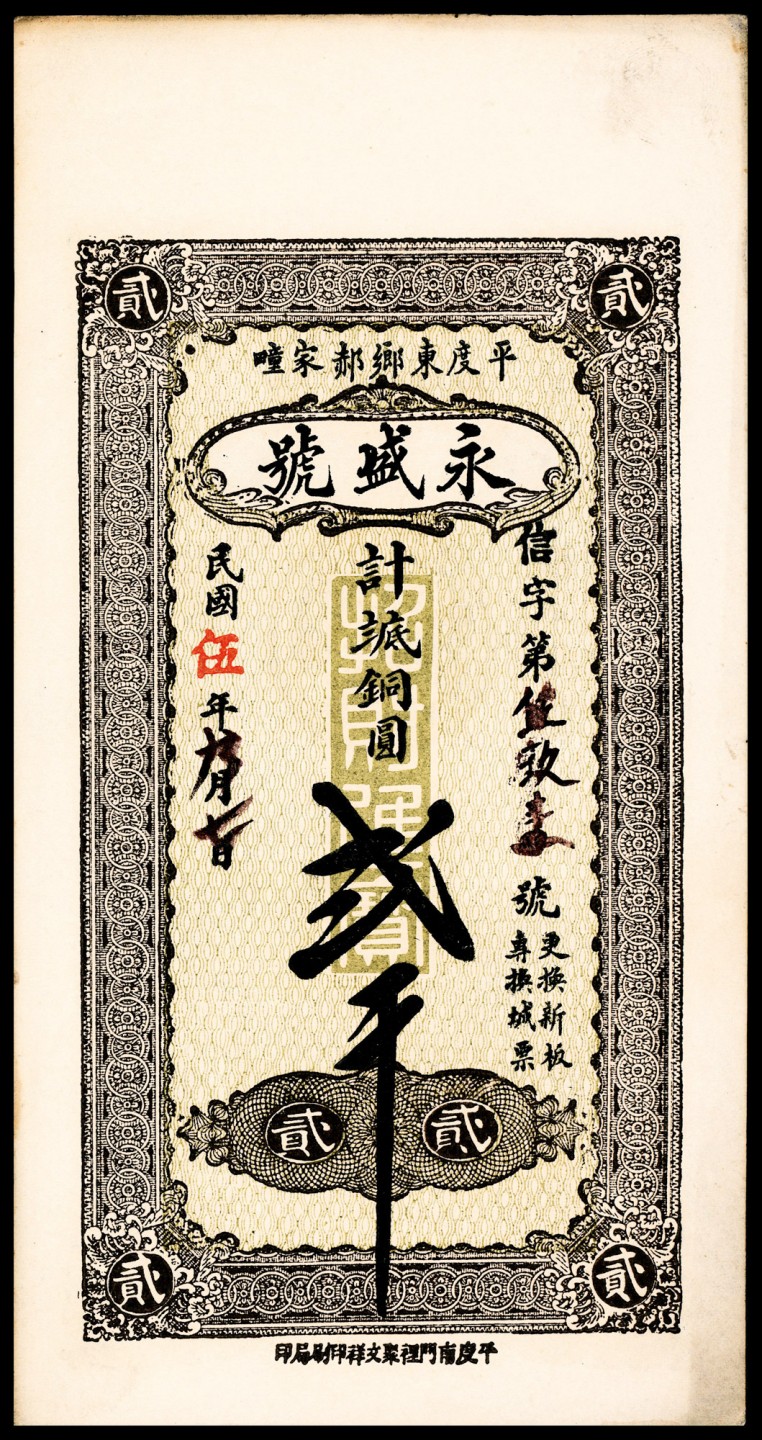 貳 貳
平度東鄉郝家疃
永盛號
信字第伍玖壹號
更換新板
專換城票
計諕銅圓貳千
招財進寶
民國伍年 月 日
貳 貳
貳 貳
平度南門裡聚文祥印刷局印